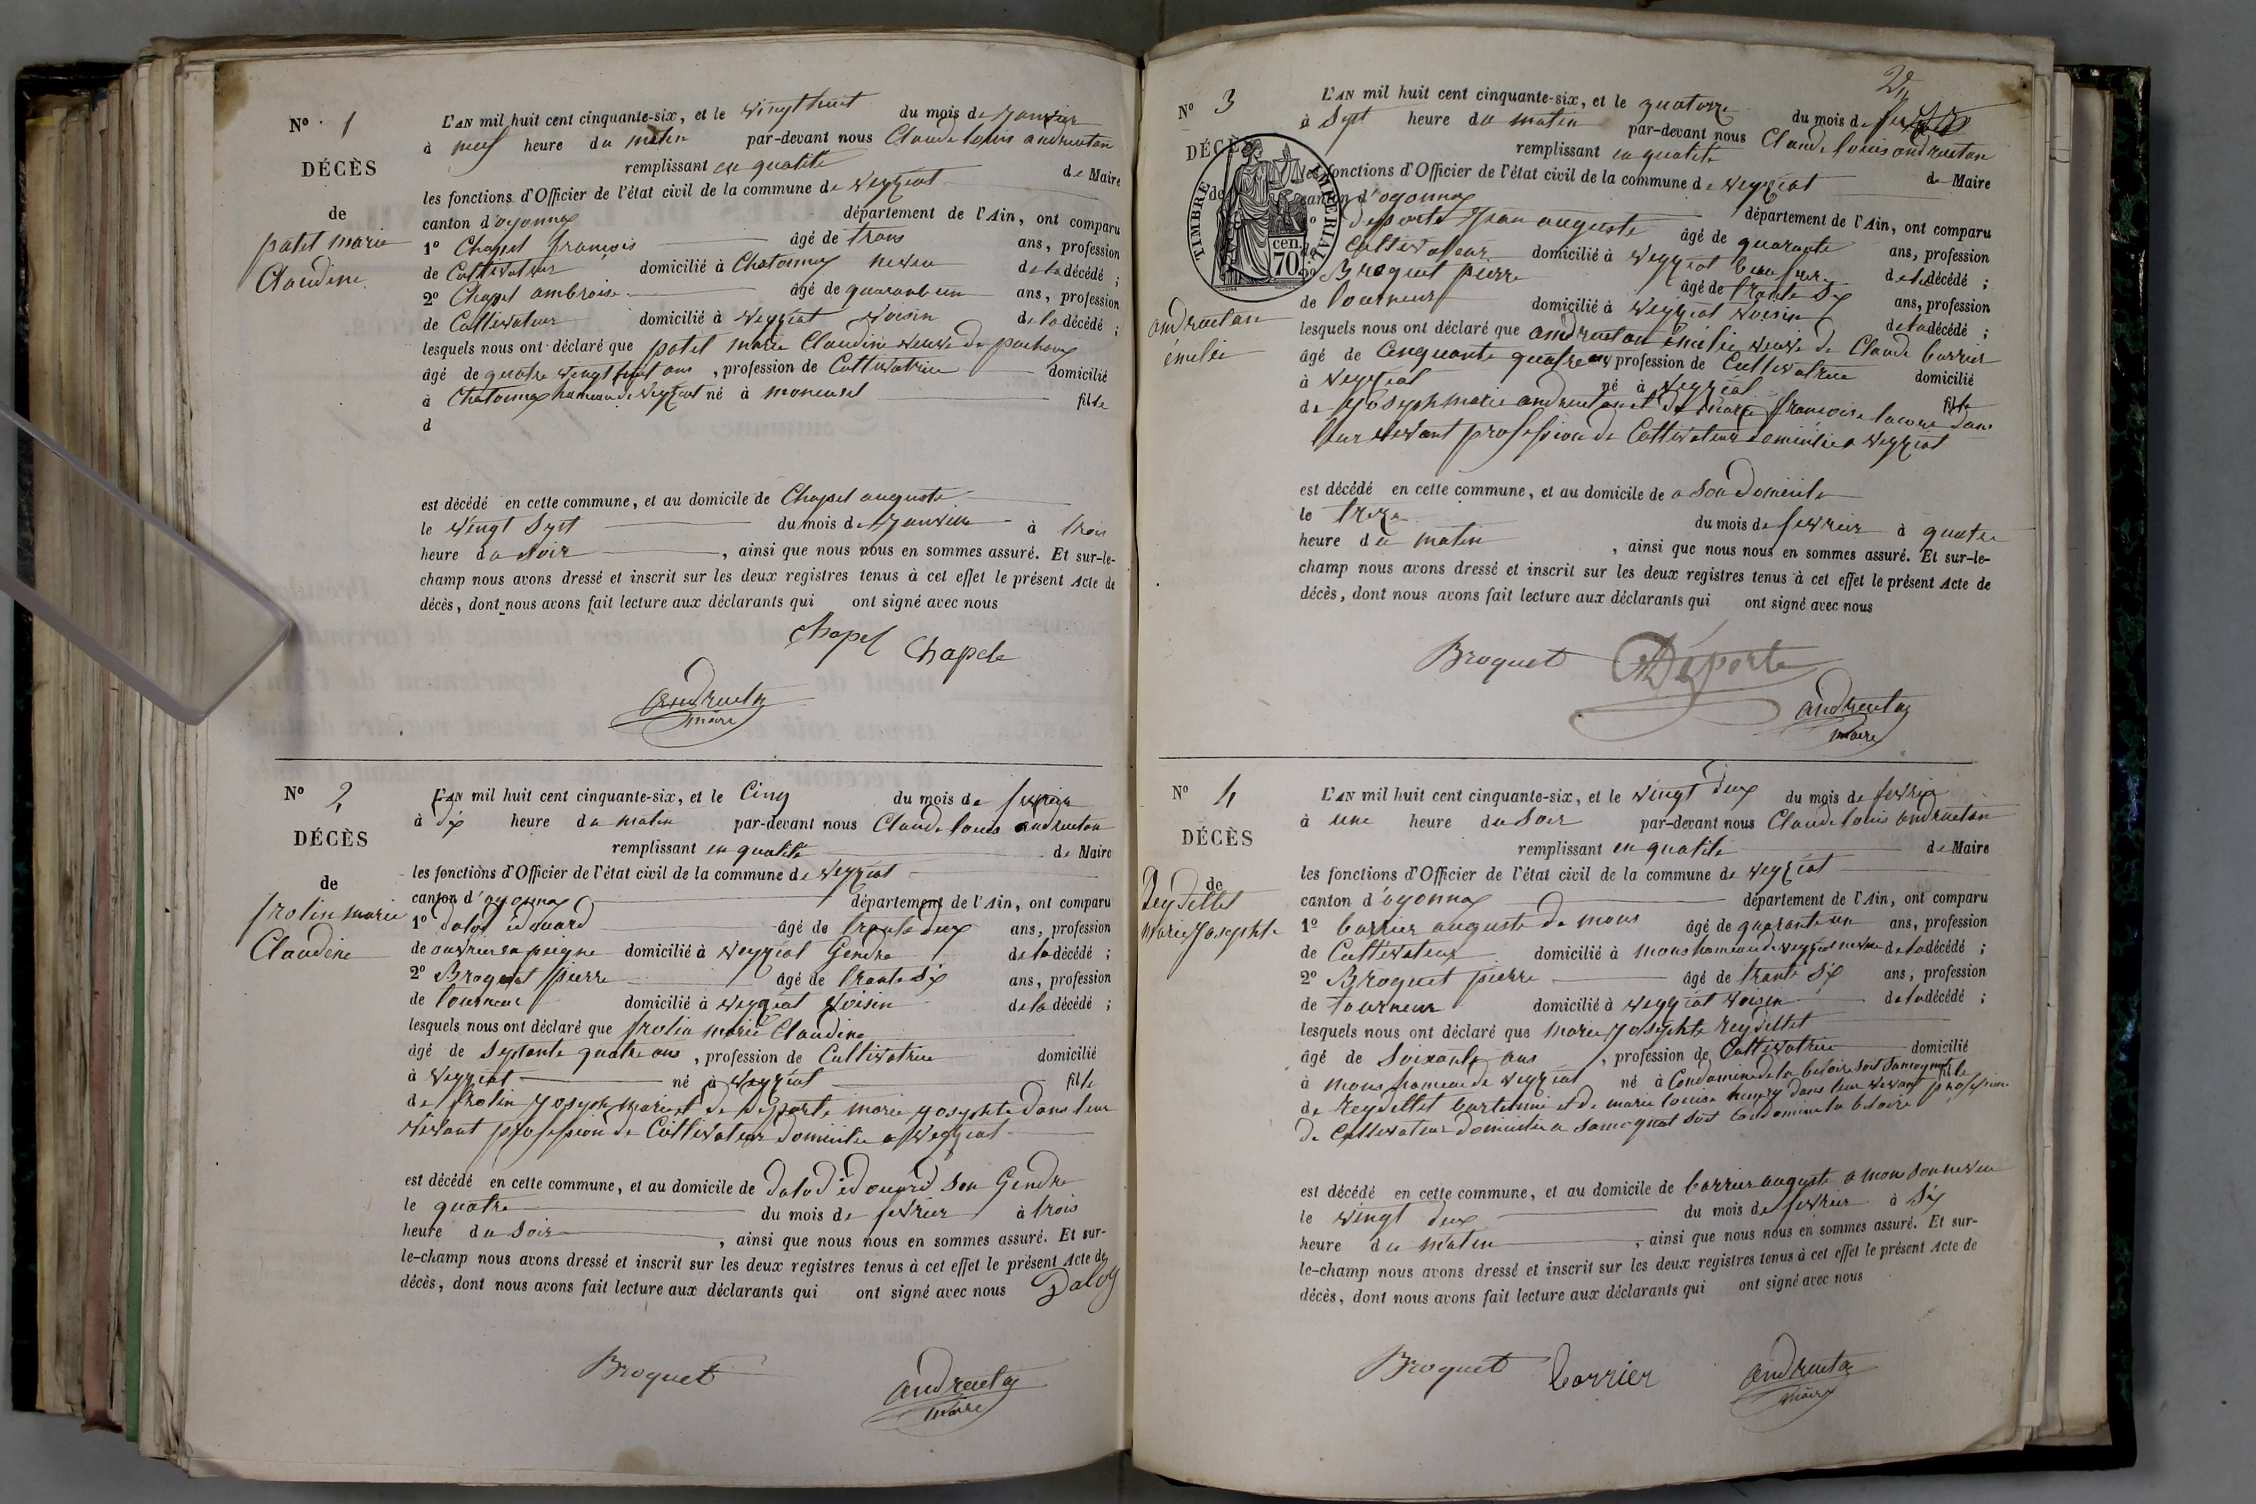 N° 1
DÉCÈS
de
patel marie
Claudine
L'AN mil huit cent cinquante-six, et le vingt huit du mois de janvier
à neuf heure du matin par-devant nous Claude louis andruetan
remplissant en qualité de Maire
les fonctions d'Officier de l'état civil de la commune de veyziat
canton d'oyonnax département de l'Ain, ont comparu
1° Chapel françois âgé de trans ans, profession
de Cultivateur domicilié à Chatonnax neveu de la décédé ;
2° Chapel ambroise âgé de quarant un ans, profession
de Cultivateur domicilié à veyziat voisin de la décédé ;
lesquels nous ont déclaré que patel marie Claudine veuve de
âgé de quatre vingt huit ans, profession de Cultivatrice domicilié
à Chatonnax hameau de veyziat né à filte
d
est décédé en cette commune, et au domicile de Chapel auguste
le vingt sept du mois de janvier à trois
heure du soir, ainsi que nous nous en sommes assuré. Et sur-le-
champ nous avons dressé et inscrit sur les deux registres tenus à cet effet le présent Acte de
décès, dont nous avons fait lecture aux déclarants qui ont signé avec nous
chapel Chapele
andruetan
maire
N° 2
DÉCÈS
de
frolin marie
Claudine
L'AN mil huit cent cinquante-six, et le Cinq du mois de fevrier
à dix heure du matin par-devant nous Claude louis andruetan
remplissant en qualité de Maire
les fonctions d'Officier de l'état civil de la commune de veyziat
canton d'oyonnax département de l'Ain, ont comparu
1° dalod édouard âgé de trante deux ans, profession
de ouvrier en peigne domicilié à veyziat Gendre de la décédé ;
2° Broquet pierre âgé de trante six ans, profession
de tourneur domicilié à veyziat voisin de la décédé ;
lesquels nous ont déclaré que frolin marie Claudine
âgé de septante quatre ans, profession de Cultivatrice domicilié
à veyziat né à veyziat filte
de frolin joseph marie et de deporte marie josephte dans leur
vivant profession de Cultivateur domicilie a veyziat
est décédé en cette commune, et au domicile de dalod édouard son Gendre
le quatre du mois de fevrier à trois
heure du soir, ainsi que nous nous en sommes assuré. Et sur-
le-champ nous avons dressé et inscrit sur les deux registres tenus à cet effet le présent Acte de
décès, dont nous avons fait lecture aux déclarants qui ont signé avec nous Dalod
Broquet andruetan
maire
2
N° 3
DÉCÈS
de
TIMBRE IMPERIAL
70 cen.
andruetan
émelie
L'AN mil huit cent cinquante-six, et le quatorze du mois de fevrier
à sept heure du matin par-devant nous Claude louis andruetan
remplissant en qualité de Maire
les fonctions d'Officier de l'état civil de la commune de veyziat
canton d'oyonnax département de l'Ain, ont comparu
1° deporte jean auguste âgé de quarante ans, profession
Cultivateur domicilié à veyziat beau frere de la décédé ;
2° Broquet pierre âgé de trante six ans, profession
de tourneur domicilié à veyziat voisin de la décédé ;
lesquels nous ont déclaré que andruetan émélie veuve de Claude barrier
âgé de Cinquante quatre ans, profession de Cultivatrice domicilié
à veyziat né à veyziat filte
de joseph marie andruetan et de marie françoise lacroix dans
leur vivant profession de Cultivateur domicilie a veyziat
est décédé en cette commune, et au domicile de a son domicile
le treze du mois de fevrier à quatre
heure du matin, ainsi que nous nous en sommes assuré. Et sur-le-
champ nous avons dressé et inscrit sur les deux registres tenus à cet effet le présent Acte de
décès, dont nous avons fait lecture aux déclarants qui ont signé avec nous
Broquet Déporte
andruetan
maire
N° 4
DÉCÈS
de
Reydellet
marie josephte
L'AN mil huit cent cinquante-six, et le vingt deux du mois de fevrier
à une heure du soir par-devant nous Claude louis andruetan
remplissant en qualité de Maire
les fonctions d'Officier de l'état civil de la commune de veyziat
canton d'oyonnax département de l'Ain, ont comparu
1° barrier auguste de mons âgé de quarante un ans, profession
de Cultivateur domicilié à mons hameau de veyziat neveu de la décédé ;
2° Broquet pierre âgé de trante six ans, profession
de tourneur domicilié à veyziat voisin de la décédé ;
lesquels nous ont déclaré que marie josephte reydellet
âgé de soixante ans, profession de Cultivatrice domicilié
à mons hameau de veyziat né à Condamine de la beloire soit samognat filte
de reydellet bartelmi et de marie louise dans leur vivant profession
de Cultivateur domicilie a samognat soit Condamine la beloire
est décédé en cette commune, et au domicile de barrier auguste a mons son neveu
le vingt deux du mois de fevrier à six
heure du matin, ainsi que nous nous en sommes assuré. Et sur-
le-champ nous avons dressé et inscrit sur les deux registres tenus à cet effet le présent Acte de
décès, dont nous avons fait lecture aux déclarants qui ont signé avec nous
Broquet barrier andruetan
maire